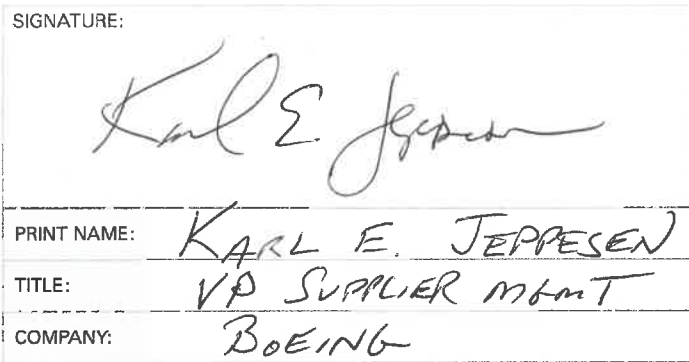 SIGNATURE:
Karl E Jeppesen
PRINT NAME: KARL E. JEPPESEN
TITLE: VP SUPPLIER MGMT
COMPANY: BOEING